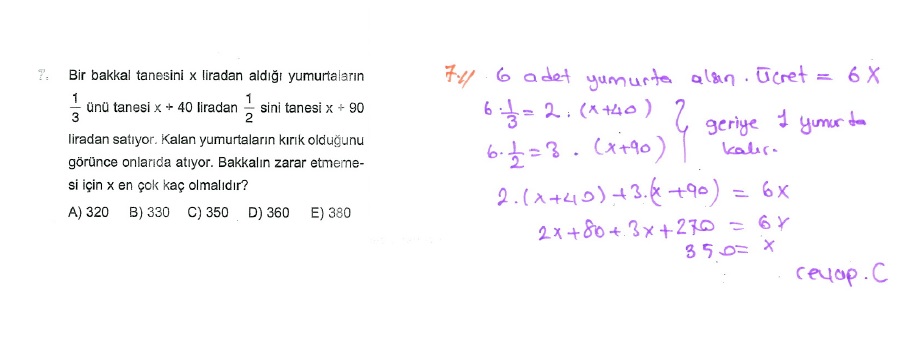 7. Bir bakkal tanesini x liradan aldığı yumurtaların
1/3 ünü tanesi x + 40 liradan 1/2 sini tanesi x + 90
liradan satıyor. Kalan yumurtaların kırık olduğunu
görünce onlarıda atıyor. Bakkalın zarar etmeme-
si için x en çok kaç olmalıdır?
A) 320 B) 330 C) 350 D) 360 E) 380
7-// 6 adet yumurta alsın. Ücret = 6X
6·1/3 = 2. (x+40)
6·1/2 = 3. (x+90)
geriye 1 yumurta
kalır.
2.(x+40)+3.(x+90) = 6x
2x+80+3x+270 = 6x
350= x
cevap. C